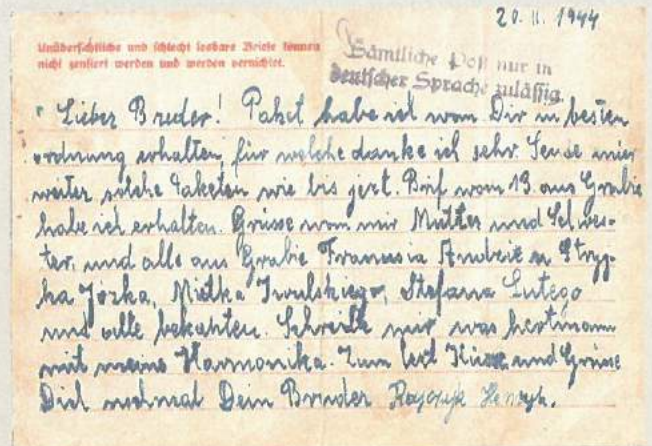 20. II. 1944
Unübersichtliche und schlecht lesbare Briefe können
nicht zensiert werden und werden vernichtet.
Sämtliche Post nur in
deutscher Sprache zulässig.
Lieber Bruder! Paket habe ich vom Dir in besten
ordnung erhalten, für welche danke ich sehr. Sende mir
weiter solche Paketen wie bis jezt. Brif vom 13. aus Grabie
habe ich erhalten. Grüsse vom mir Mutter und Schwes-
ter, und alle aus Grabie Franusia
ha Józka, Mietka Iwulskiego, Stefana Lutego
und alle bekahten. Schreibe mir was
mit meine Harmonika. Zum lezt Küsse und Grüsse
Dich Dein Bruder Henryk.